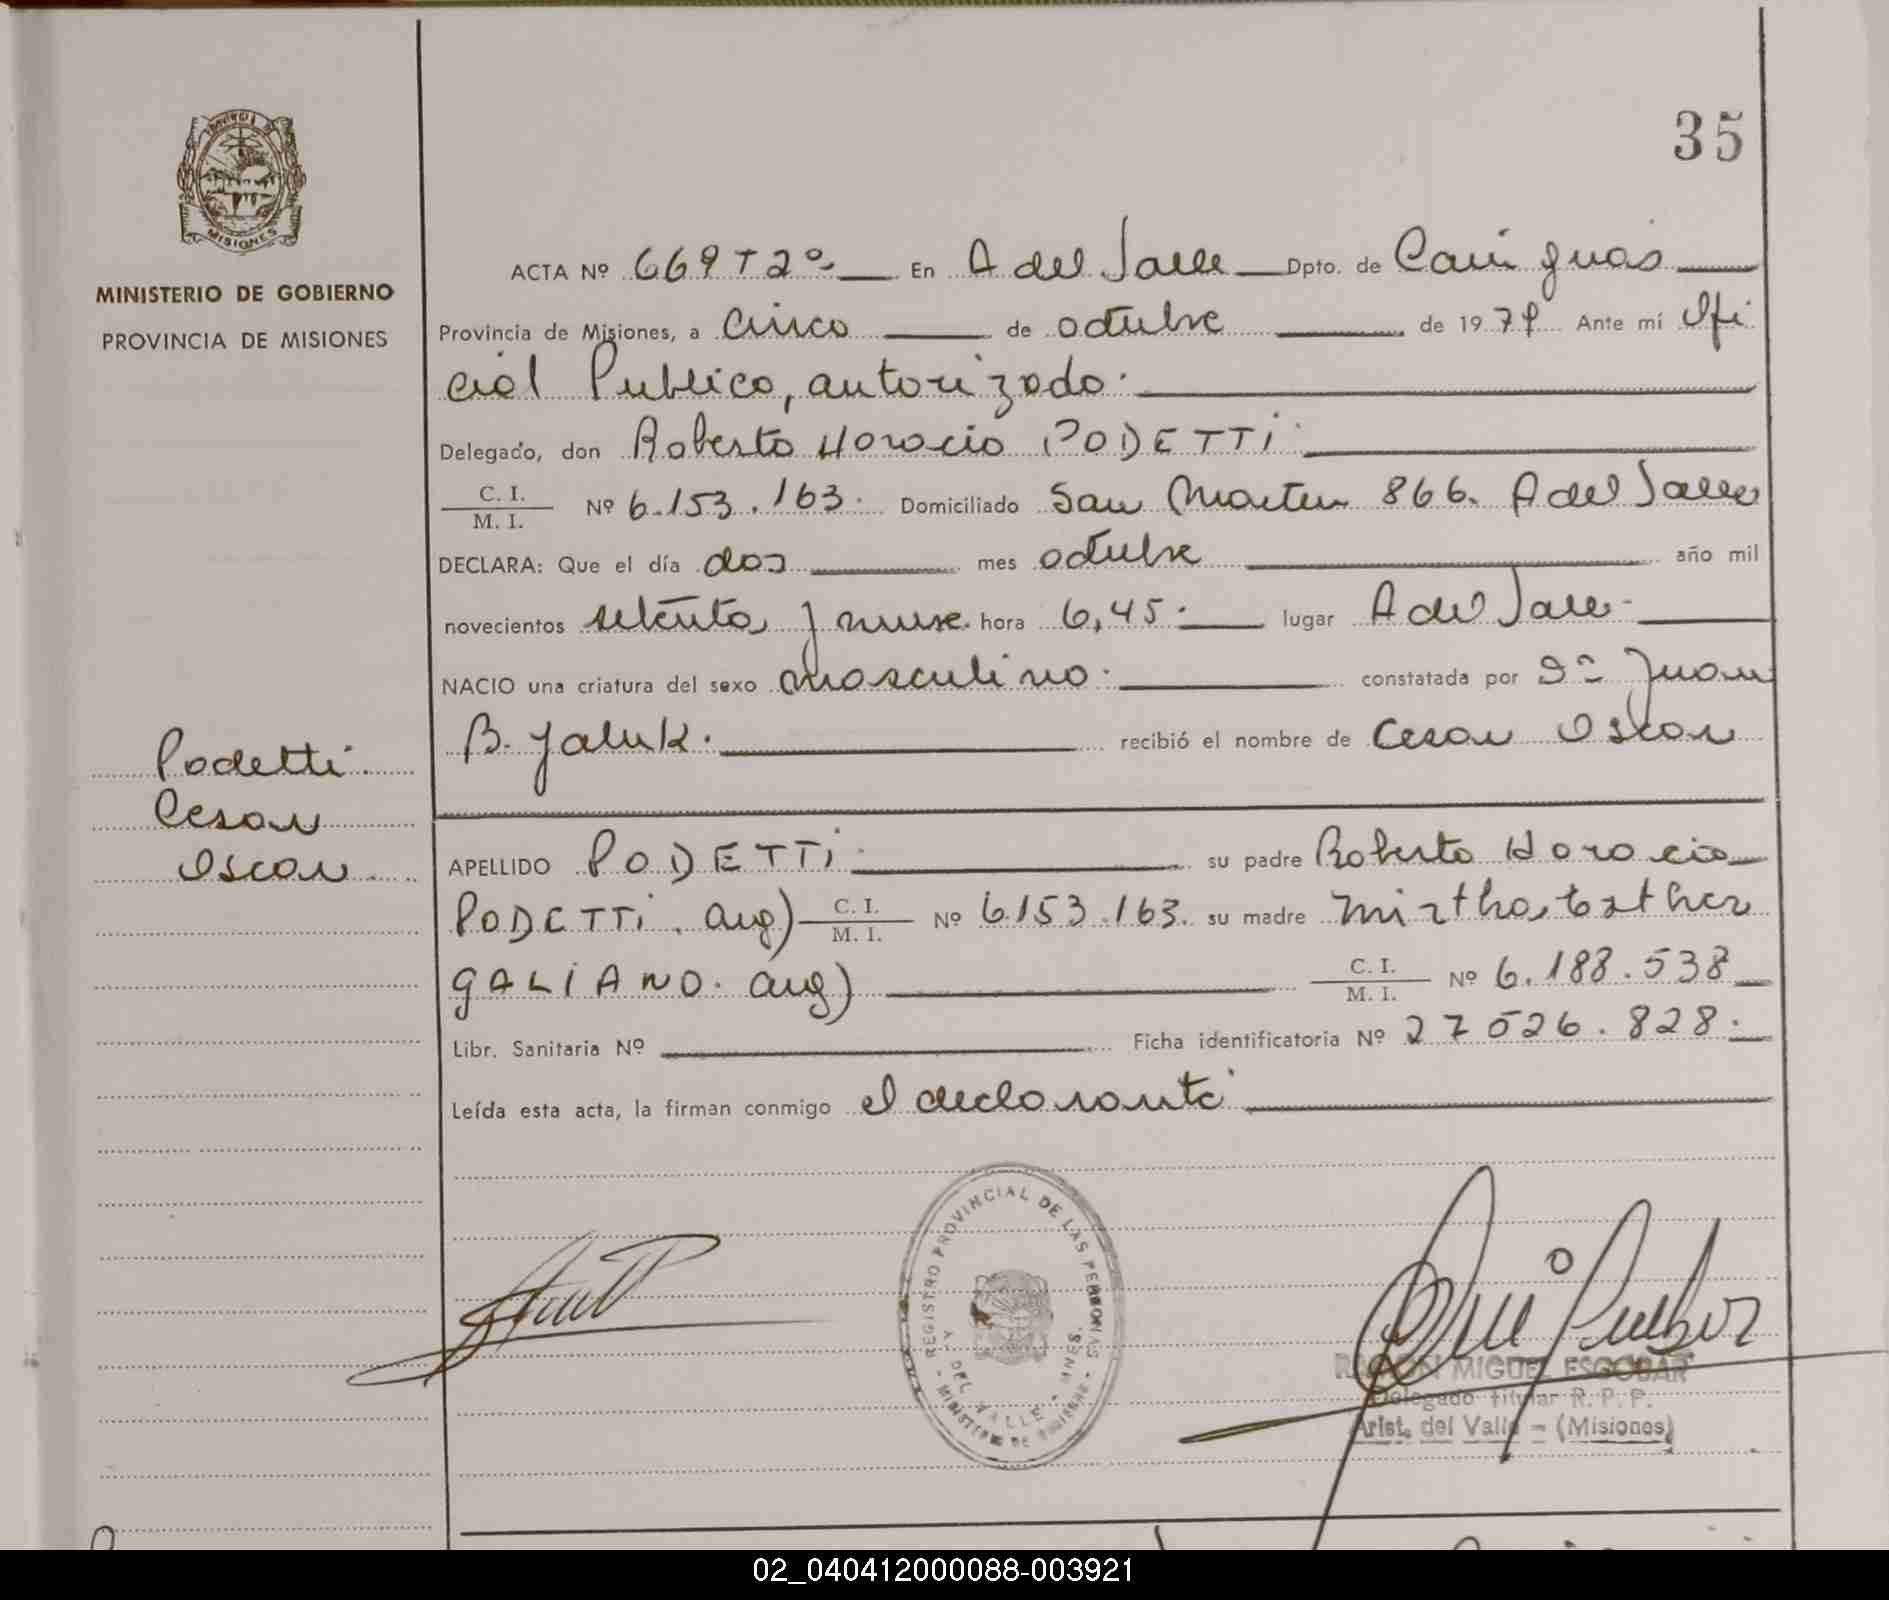 35
PROVINCIA DE
MISIONES
MINISTERIO DE GOBIERNO
PROVINCIA DE MISIONES
ACTA Nº 669 T 2º En A del Valle Dpto. de Cainguás
Provincia de Misiones, a cinco de octubre de 1979 Ante mí Ofi
cial Publico, autorizado.
Delegado, don Roberto Horacio PODETTI
C. I.
M. I. Nº 6.153.163. Domiciliado San Martin 866. A del Valle
DECLARA: Que el día dos mes octubre año mil
novecientos setenta y nueve. hora 6,45. lugar A del Valle
NACIO una criatura del sexo masculino. constatada por Dr Juan
B. Yaluk. recibió el nombre de Cesar Oscar
Podetti
Cesar
Oscar
APELLIDO PODETTI su padre Roberto Horacio
PODETTI. arg) C. I.
M. I. Nº 6.153.163. su madre Mirtha Esther
GALIANO. arg) C. I.
M. I. Nº 6.188.538
Libr. Sanitaria Nº Ficha identificatoria Nº 27526.828.
Leída esta acta, la firman conmigo el declarante
REGISTRO PROVINCIAL DE LAS PERSONAS
A. DEL VALLE - MNES.
- MINISTERIO DE GOBIERNO -
RAMON MIGUEL ESCOBAR
Delegado titular R. P. P.
Arist. del Valle - (Misiones)
02_040412000088-003921